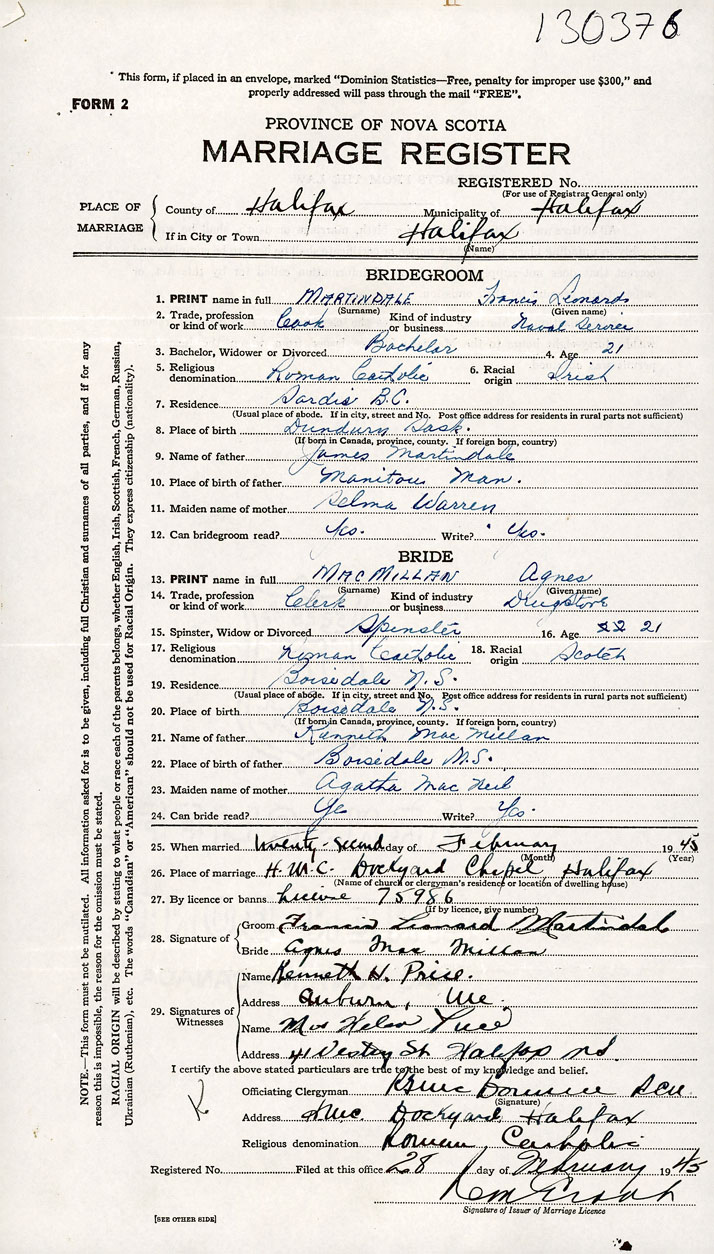 130376
* This form, if placed in an envelope, marked "Dominion Statistics—Free, penalty for improper use $300," and
properly addressed will pass through the mail "FREE".
FORM 2
PROVINCE OF NOVA SCOTIA
MARRIAGE REGISTER
REGISTERED No.
(For use of Registrar General only)
PLACE OF MARRIAGE
County of Halifax Municipality of Halifax
If in City or Town Halifax
(Name)
BRIDEGROOM
1. PRINT name in full MARTINDALE Francis Leonards
(Surname) (Given name)
2. Trade, profession or kind of work Cook Kind of industry or business Naval Service
3. Bachelor, Widower or Divorced Bachelor 4. Age 21
5. Religious denomination Roman Catholic 6. Racial origin Irish
7. Residence Sardis B.C.
(Usual place of abode. If in city, street and No. Post office address for residents in rural parts not sufficient)
8. Place of birth Dundurn Sask.
(If born in Canada, province, county. If foreign born, country)
9. Name of father James Martindale
10. Place of birth of father Manitou Man.
11. Maiden name of mother Selma Warren
12. Can bridegroom read? Yes. Write? Yes.
BRIDE
13. PRINT name in full MACMILLAN Agnes
(Surname) (Given name)
14. Trade, profession or kind of work Clerk Kind of industry or business Drugstore
15. Spinster, Widow or Divorced Spinster 16. Age 22 21
17. Religious denomination Roman Catholic 18. Racial origin Scotch
19. Residence Boisdale N.S.
(Usual place of abode. If in city, street and No. Post office address for residents in rural parts not sufficient)
20. Place of birth Boisdale N.S.
(If born in Canada, province, county. If foreign born, country)
21. Name of father Kenneth Mac Millan
22. Place of birth of father Boisdale N.S.
23. Maiden name of mother Agatha Mac Neil
24. Can bride read? Yes Write? Yes.
25. When married twenty-second day of February 1945
(Month) (Year)
26. Place of marriage H.M.C. Dockyard Chapel Halifax
(Name of church or clergyman's residence or location of dwelling house)
27. By licence or banns licence 75986
(If by licence, give number)
28. Signature of
Groom Francis Leonard Martindale
Bride Agnes Mac Millan
29. Signatures of Witnesses
Name Kenneth H. Price.
Address Auburn, Me.
Name Mrs Helen
Address 41 St Halifax NS.
I certify the above stated particulars are true to the best of my knowledge and belief.
Officiating Clergyman
(Signature)
Address HMC Dockyard Halifax
Religious denomination Roman Catholic
Registered No. Filed at this office 28 day of February 1945
Signature of Issuer of Marriage Licence
[SEE OTHER SIDE]
NOTE.—This form must not be mutilated. All information asked for is to be given, including full Christian and surnames of all parties, and if for any
reason this is impossible, the reason for the omission must be stated.
RACIAL ORIGIN will be described by stating to what people or race each of the parents belongs, whether English, Irish, Scottish, French, German, Russian,
Ukrainian (Ruthenian), etc. The words "Canadian" or "American" should not be used for Racial Origin. They express citizenship (nationality).